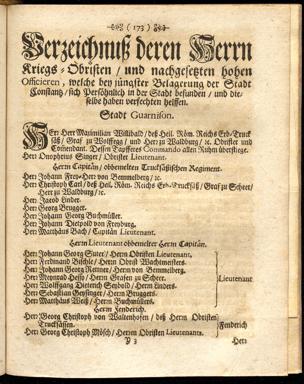 ( 173 )
Verzeichnuß deren Herrn
Kriegs-Obristen / und nachgesetzten hohen
Officieren, welche bey jüngster Belagerung der Stadt
Constantz / sich Persöhnlich in der Stadt befunden / und die-
selbe haben verfechten helffen.
Stadt Guarnison.
HErr Herr Maximilian Willibald / deß Heil. Röm. Reichs Erb-Truck
säß / Graf zu Wolffegg / und Herr zu Waldburg / ꝛc. Obrister und
Commendant. Dessen Tapfferes Commando allen Ruhm übersteige.
Herr Onophrius Singer / Obrister Lieutenant.
Herrn Capitän / obbemelten Truckfäßischen Regiment.
Hr. Johann Frey-Herr von Bemmelberg / ꝛc.
Hr. Christoph Carl / deß Heil. Röm. Reichs Erb-Trucksäß / Graf zu Scheer /
Herr zu Waldburg / ꝛc.
Hr. Jacob Linder.
Hr. Georg Brugger.
Hr. Johann Georg Buchmüller.
Hr. Johann Dietpold von Freyburg.
Hr. Matthäus Bach / Capitän Lieutenant.
Herrn Lieutenant obbenelter Herrn Capitän.
Hr. Johann Georg Suter / Herrn Obristen Lieutenant.
Hr. Ferdinand Bischle / Herrn Obrist Wachtmeisters.
Hr. Johann Georg Rettner / Herrn von Bemmelberg.
Hr. Johann Heyd / Herrn Grafen zu Scheer.
Hr. Wolffgang Dieterich Seybold / Herrn Linders.
Hr. Sebastian Geysinger / Herrn Bruggers.
Hr. Matthäus Weiß / Herrn Buchmüllers.
Lieutenant
Herrn Fenderich.
Hr. Georg Christoph von Waltenhofen / deß Herrn Obristen
Trucksässen.
Hr. Georg Christoph Mösch / Herren Obristen Lieutenants.
Fenderich
Herr